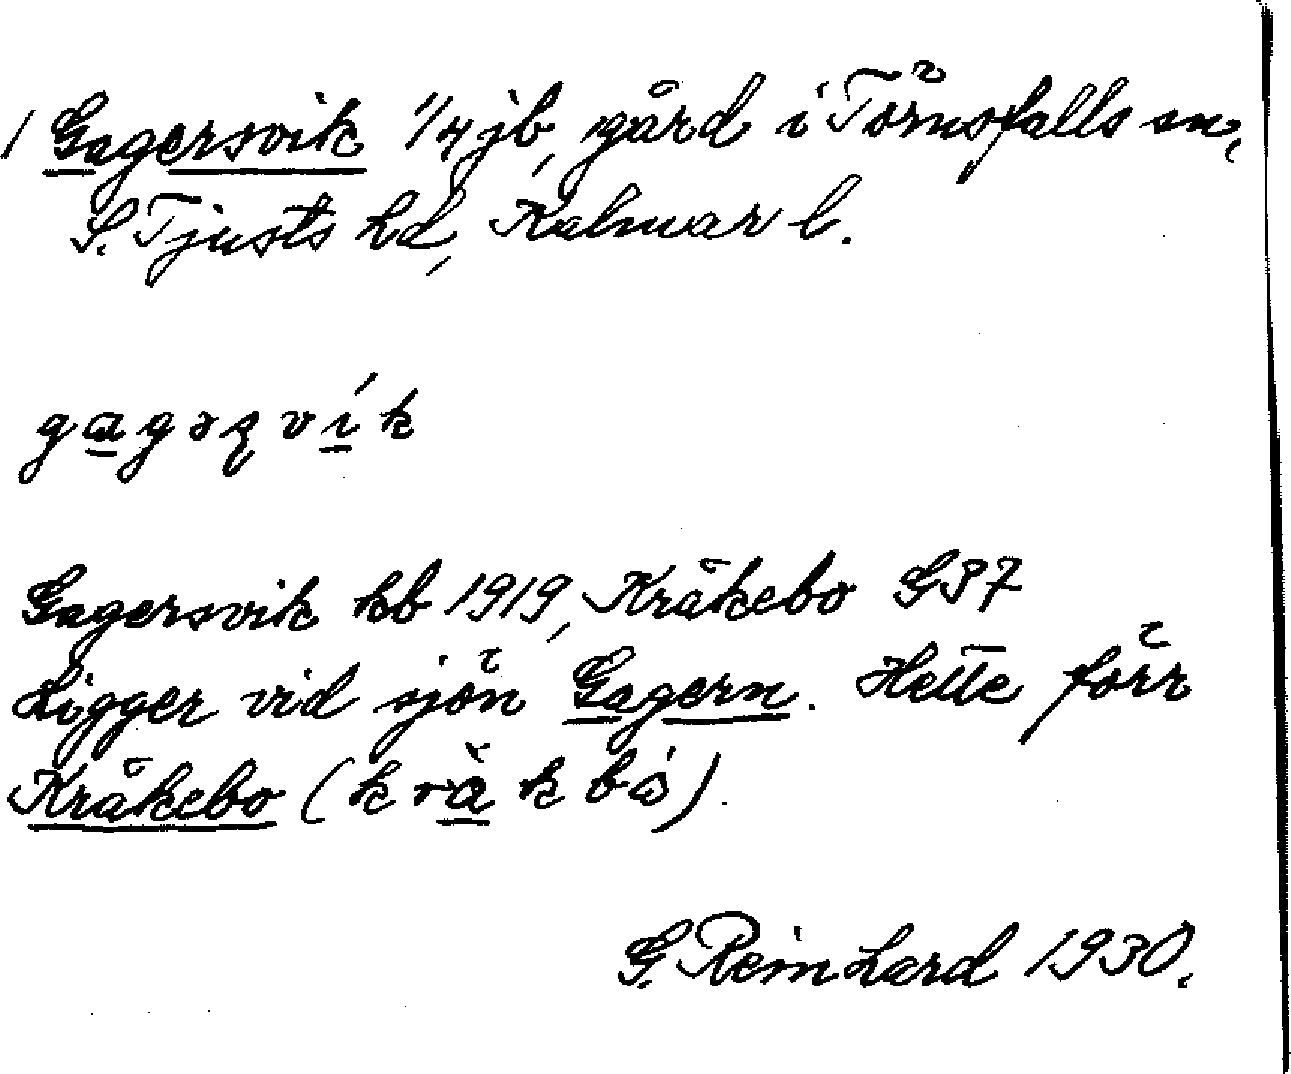 1 Gagersvik 1/4 jb, gård i Törnsfalls sn,
S. Tjusts hd, Kalmar l.
gagərsvík
Gagersvik kb 1919, Kråkebo GS7
Ligger vid sjön Gagern. Hette förr
Kråkebo (kråkbó).
G. Reinhard 1930.